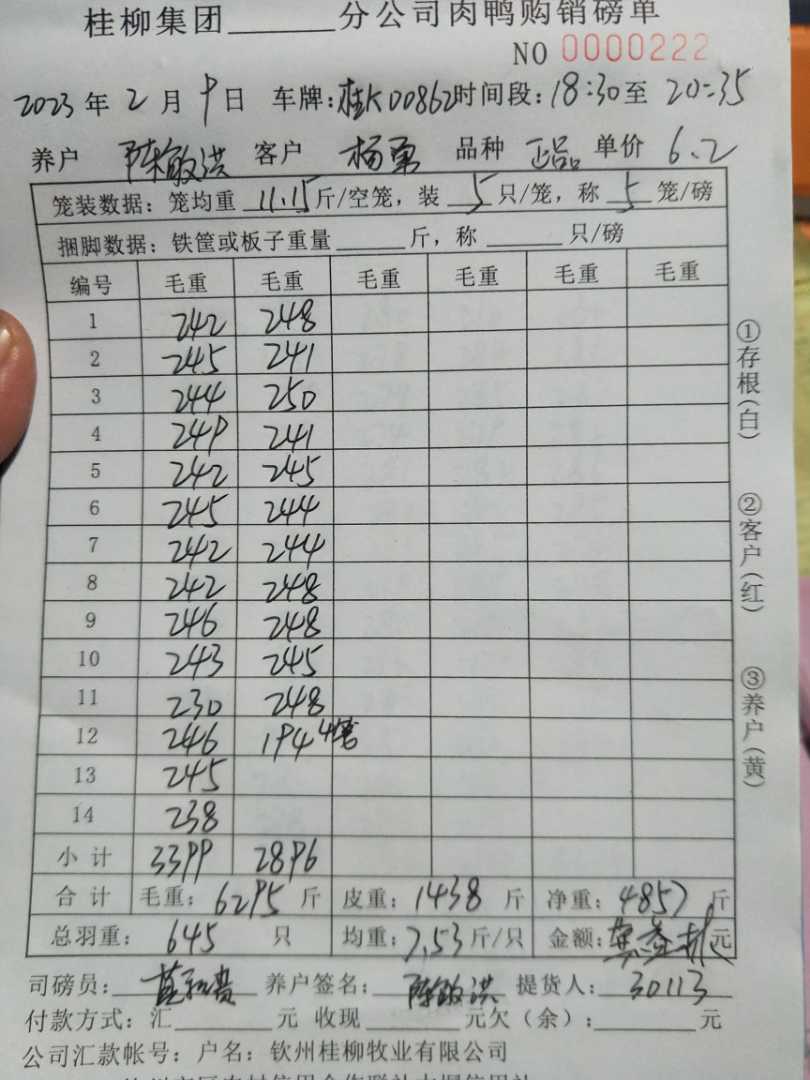 桂柳集团______分公司肉鸭购销磅单
NO 0000222
2023年2月9日 车牌:桂K00862 时间段:18:30至20:35
养户 陈敏洪 客户 杨勇 品种 正品 单价 6.2
笼装数据:笼均重 11.15斤/空笼,装 5 只/笼,称 5 笼/磅
捆脚数据:铁筐或板子重量______斤,称______只/磅
编号 毛重 毛重 毛重 毛重 毛重 毛重
1 242 248
2 245 241
3 244 250
4 249 241
5 242 245
6 245 244
7 242 244
8 242 248
9 246 248
10 243 245
11 230 248
12 246 194 4笼
13 245
14 238
小计 3399 2896
合计 毛重:6295斤 皮重:1438斤 净重:4857斤
总羽重:645只 均重:7.53斤/只 金额:元
司磅员: 养户签名:陈敏洪 提货人:30113
付款方式:汇______元 收现______元欠(余):______元
公司汇款帐号:户名:钦州桂柳牧业有限公司
①存根(白)
②客户(红)
③养户(黄)